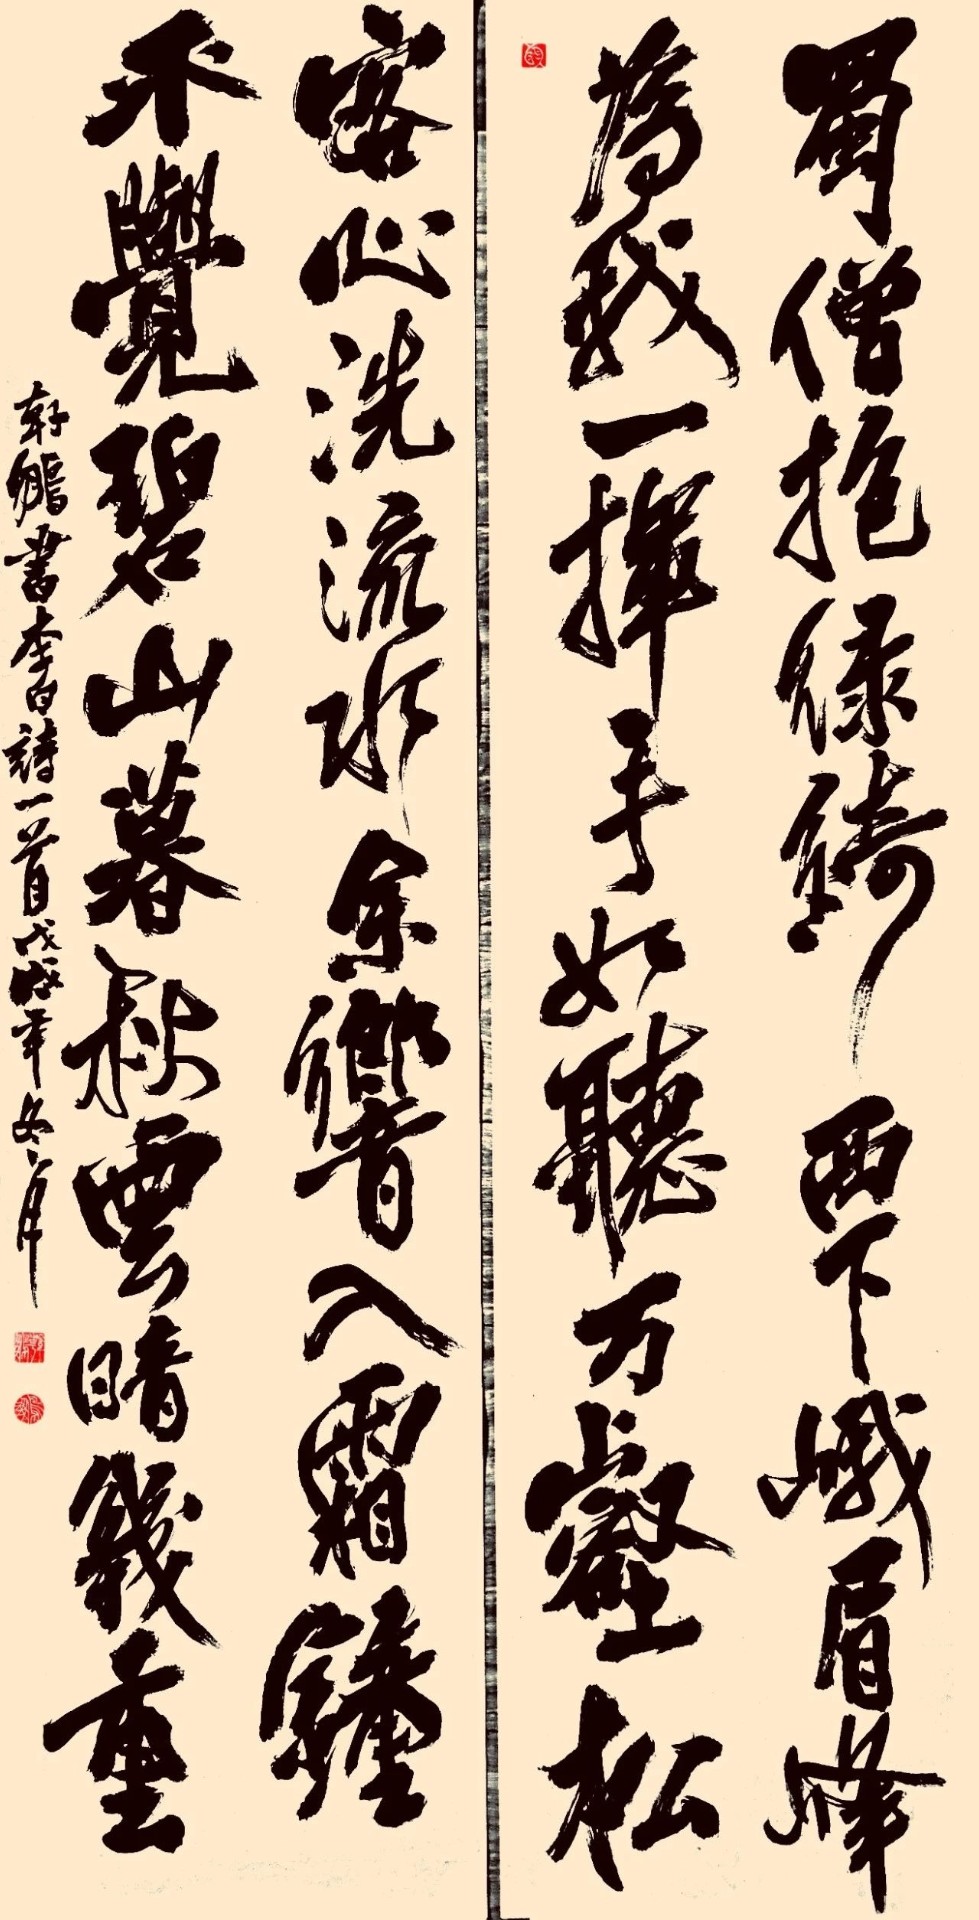 蜀僧抱綠綺西下峨眉峰
為我一揮手如聽万壑松
客心洗流水余響入霜鐘
不覺碧山暮秋雲暗幾重
軒鵬書李白詩一首戊戌年冬月